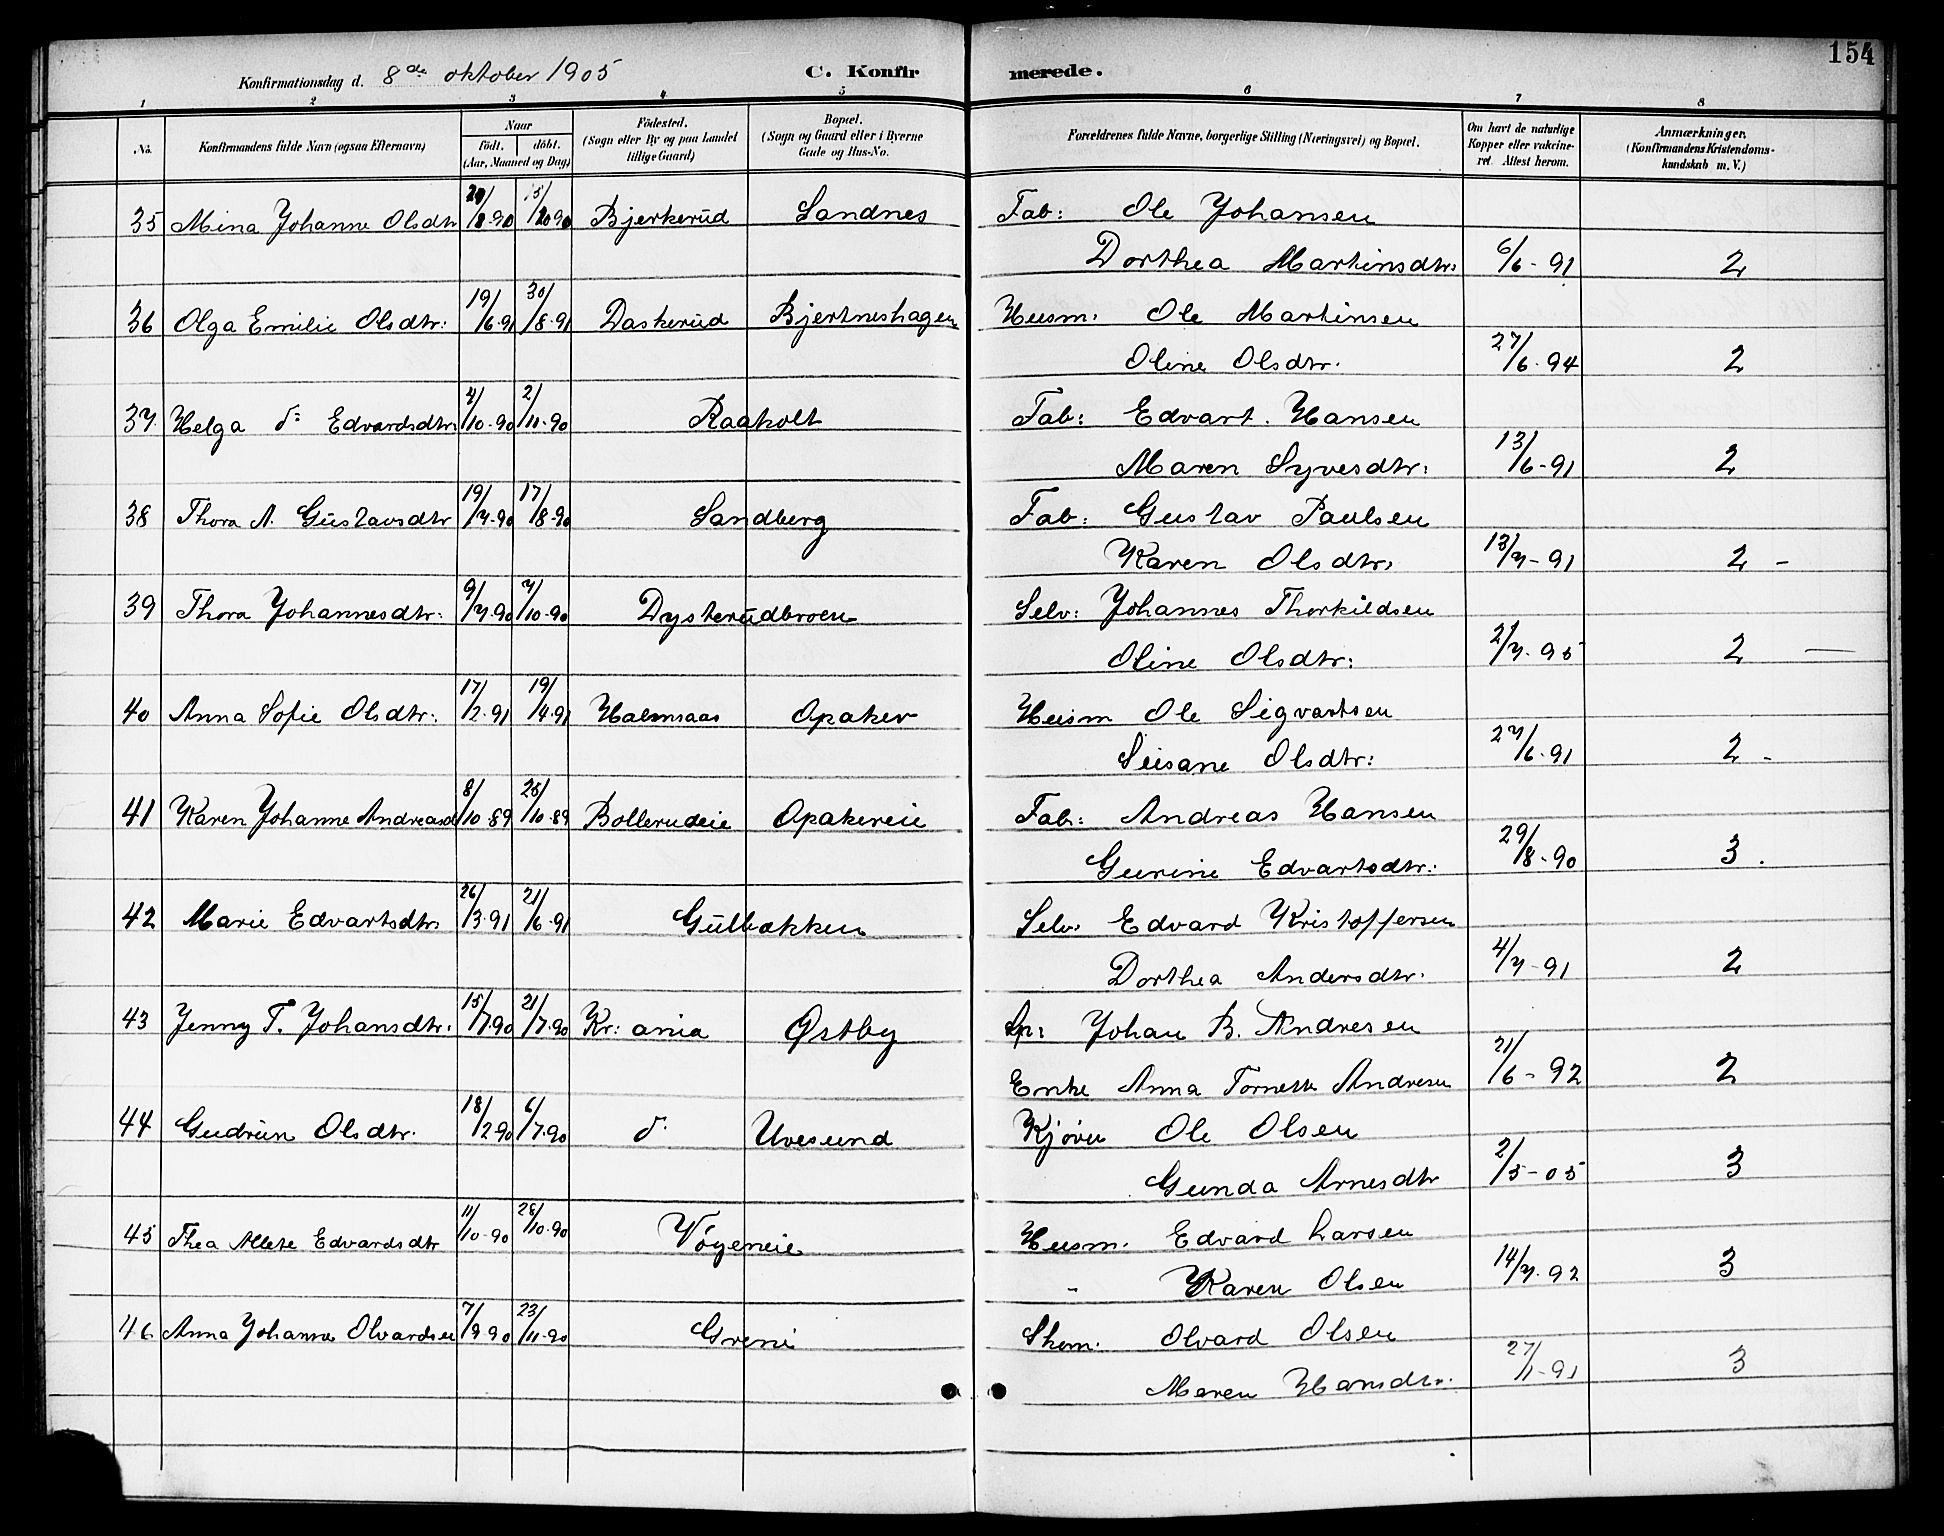 154
Konfirmationsdag d. 8de oktober 1905 C. Konfirmerede.
1 2 3 4 5 6 7 8
No. Konfirmandens fulde Navn (ogsaa Efternavn) Naar födt. döbt. (Aar, Maaned og Dag) Födested. (Sogn eller By og paa Landet tillige Gaard) Bopæl. (Sogn og Gaard eller i Byerne Gade og Hus-No. Forældrenes fulde Navne, borgerlige Stilling (Næringsvei) og Bopæl. Om havt de naturlige Kopper eller vakcineret. Attest herom. Anmærkninger. (Konfirmandens Kristendomskundskab m. V.)
35 Mina Johanne Olsdtr /8-90 /1090 Bjerkerud Sandnes Fab: Ole Johansen
Dorthea Martinsdtr: 6/6-91 2
36 Olga Emilie Olsdtr: 19/6-91 30/8-91 Daskerud Bjertneshagen Husm: Ole Martinsen
Oline Olsdtr. 27/6-94 2
37 Helga d: Edvardsdtr: 4/10-90 2/11-90 Raaholt Fab: Edvart. Hansen
Maren Syvesdtr: 13/6-91 2
38 Thora A. Gustavsdtr 19/7-90 17/8-90 Sandberg Fab: Gustav Paulsen
Karen Olsdtr: 13/7-91 2 -
39 Thora Johannesdtr: 9/7-90 7/10-90 Dysterudbroen Selv: Johannes Thorkildsen
Oline Olsdtr: 2/7-95 2 —
40 Anna Sofie Olsdtr: 17/2-91 19/4-91 Halmsaas Opaker Husm Ole Sigvartsen
Susane Olsdtr: 27/6-91 2 -
41 Karen Johanne Andreasd 8/10-89 26/10-89 Bollerudeie Opakereie Fab: Andreas Hansen
Gurine Edvartsdtr: 29/8-90 3.
42 Marie Edvartsdtr 26/3-91 21/6-91 Gulbakken Selv: Edvard Kristoffersen
Dorthea Andersdtr. 4/7-91 2
43 Jenny T. Johansdtr: 15/7-90 21/7-90 Kr: ania Østby Johan B. Andresen
Enke Anna Andresen 21/6-92 2
44 Gudrun Olsdtr. 18/2-90 6/7-90 d: Uvesund Kjøver Ole Olsen
Gunda Arnesdtr 2/5-05 3
45 Thea Allete Edvardsdtr 11/10-90 28/10-90 Vøyeneie Husm. Edvard Larsen
" Karen Olsen 14/7-92 3
46 Anna Johanne Olvardsen 7/9-90 23/11-90 Greni Skom. Olvard Olsen
Maren Hansdtr. 27/1-91 3